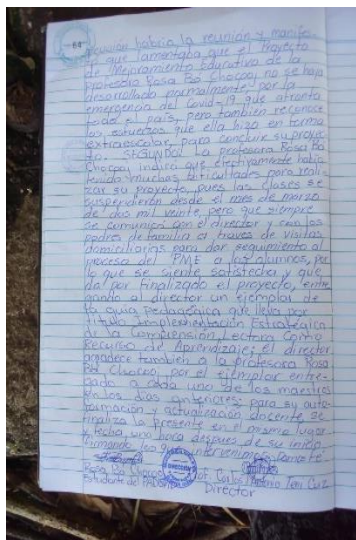 64
reunión habría la reunión y manifes-
tó que lamentaba que el Proyecto
de Mejoramiento Educativo de la
profesora Rosa Bá Chocoj, no se haya
desarrollado normalmente por la
emergencia del Covid-19 que afronta
todo el país, pero también reconoce
los esfuerzos que ella hizo en forma
extraescolar, para concluir su proyec-
to. SEGUNDO: La profesora Rosa Bá
Chocoj, indicó que efectivamente había
tenido muchas dificultades para reali-
zar su proyecto, pues las clases se
suspendieron desde el mes de marzo
de dos mil veinte, pero que siempre
se comunicó con el director y con los
padres de familia a través de visitas
domiciliarias para dar seguimiento al
proceso del PME a los alumnos, por
lo que se siente satisfecha y que
da por finalizado el proyecto, entre
gando al director un ejemplar de
la guía pedagógica que lleva por
título Implementación Estratégica
de la Comprensión Lectora Como
Recurso de Aprendizaje; el director
agradece también a la profesora Rosa
Bá Chocoj, por el ejemplar entre-
gado a cada uno de los maestros
en los días anteriores; para su auto-
formación y actualización docente. Se
finaliza la presente en el mismo lugar
y fecha, una hora después de su inicio,
firmando los que intervenimos. Damos fe:
Rosa Bá Chocoj Prof. Carlos Antonio Teni Cuz
Estudiante del PADEP/D Director
DIRECCIÓN